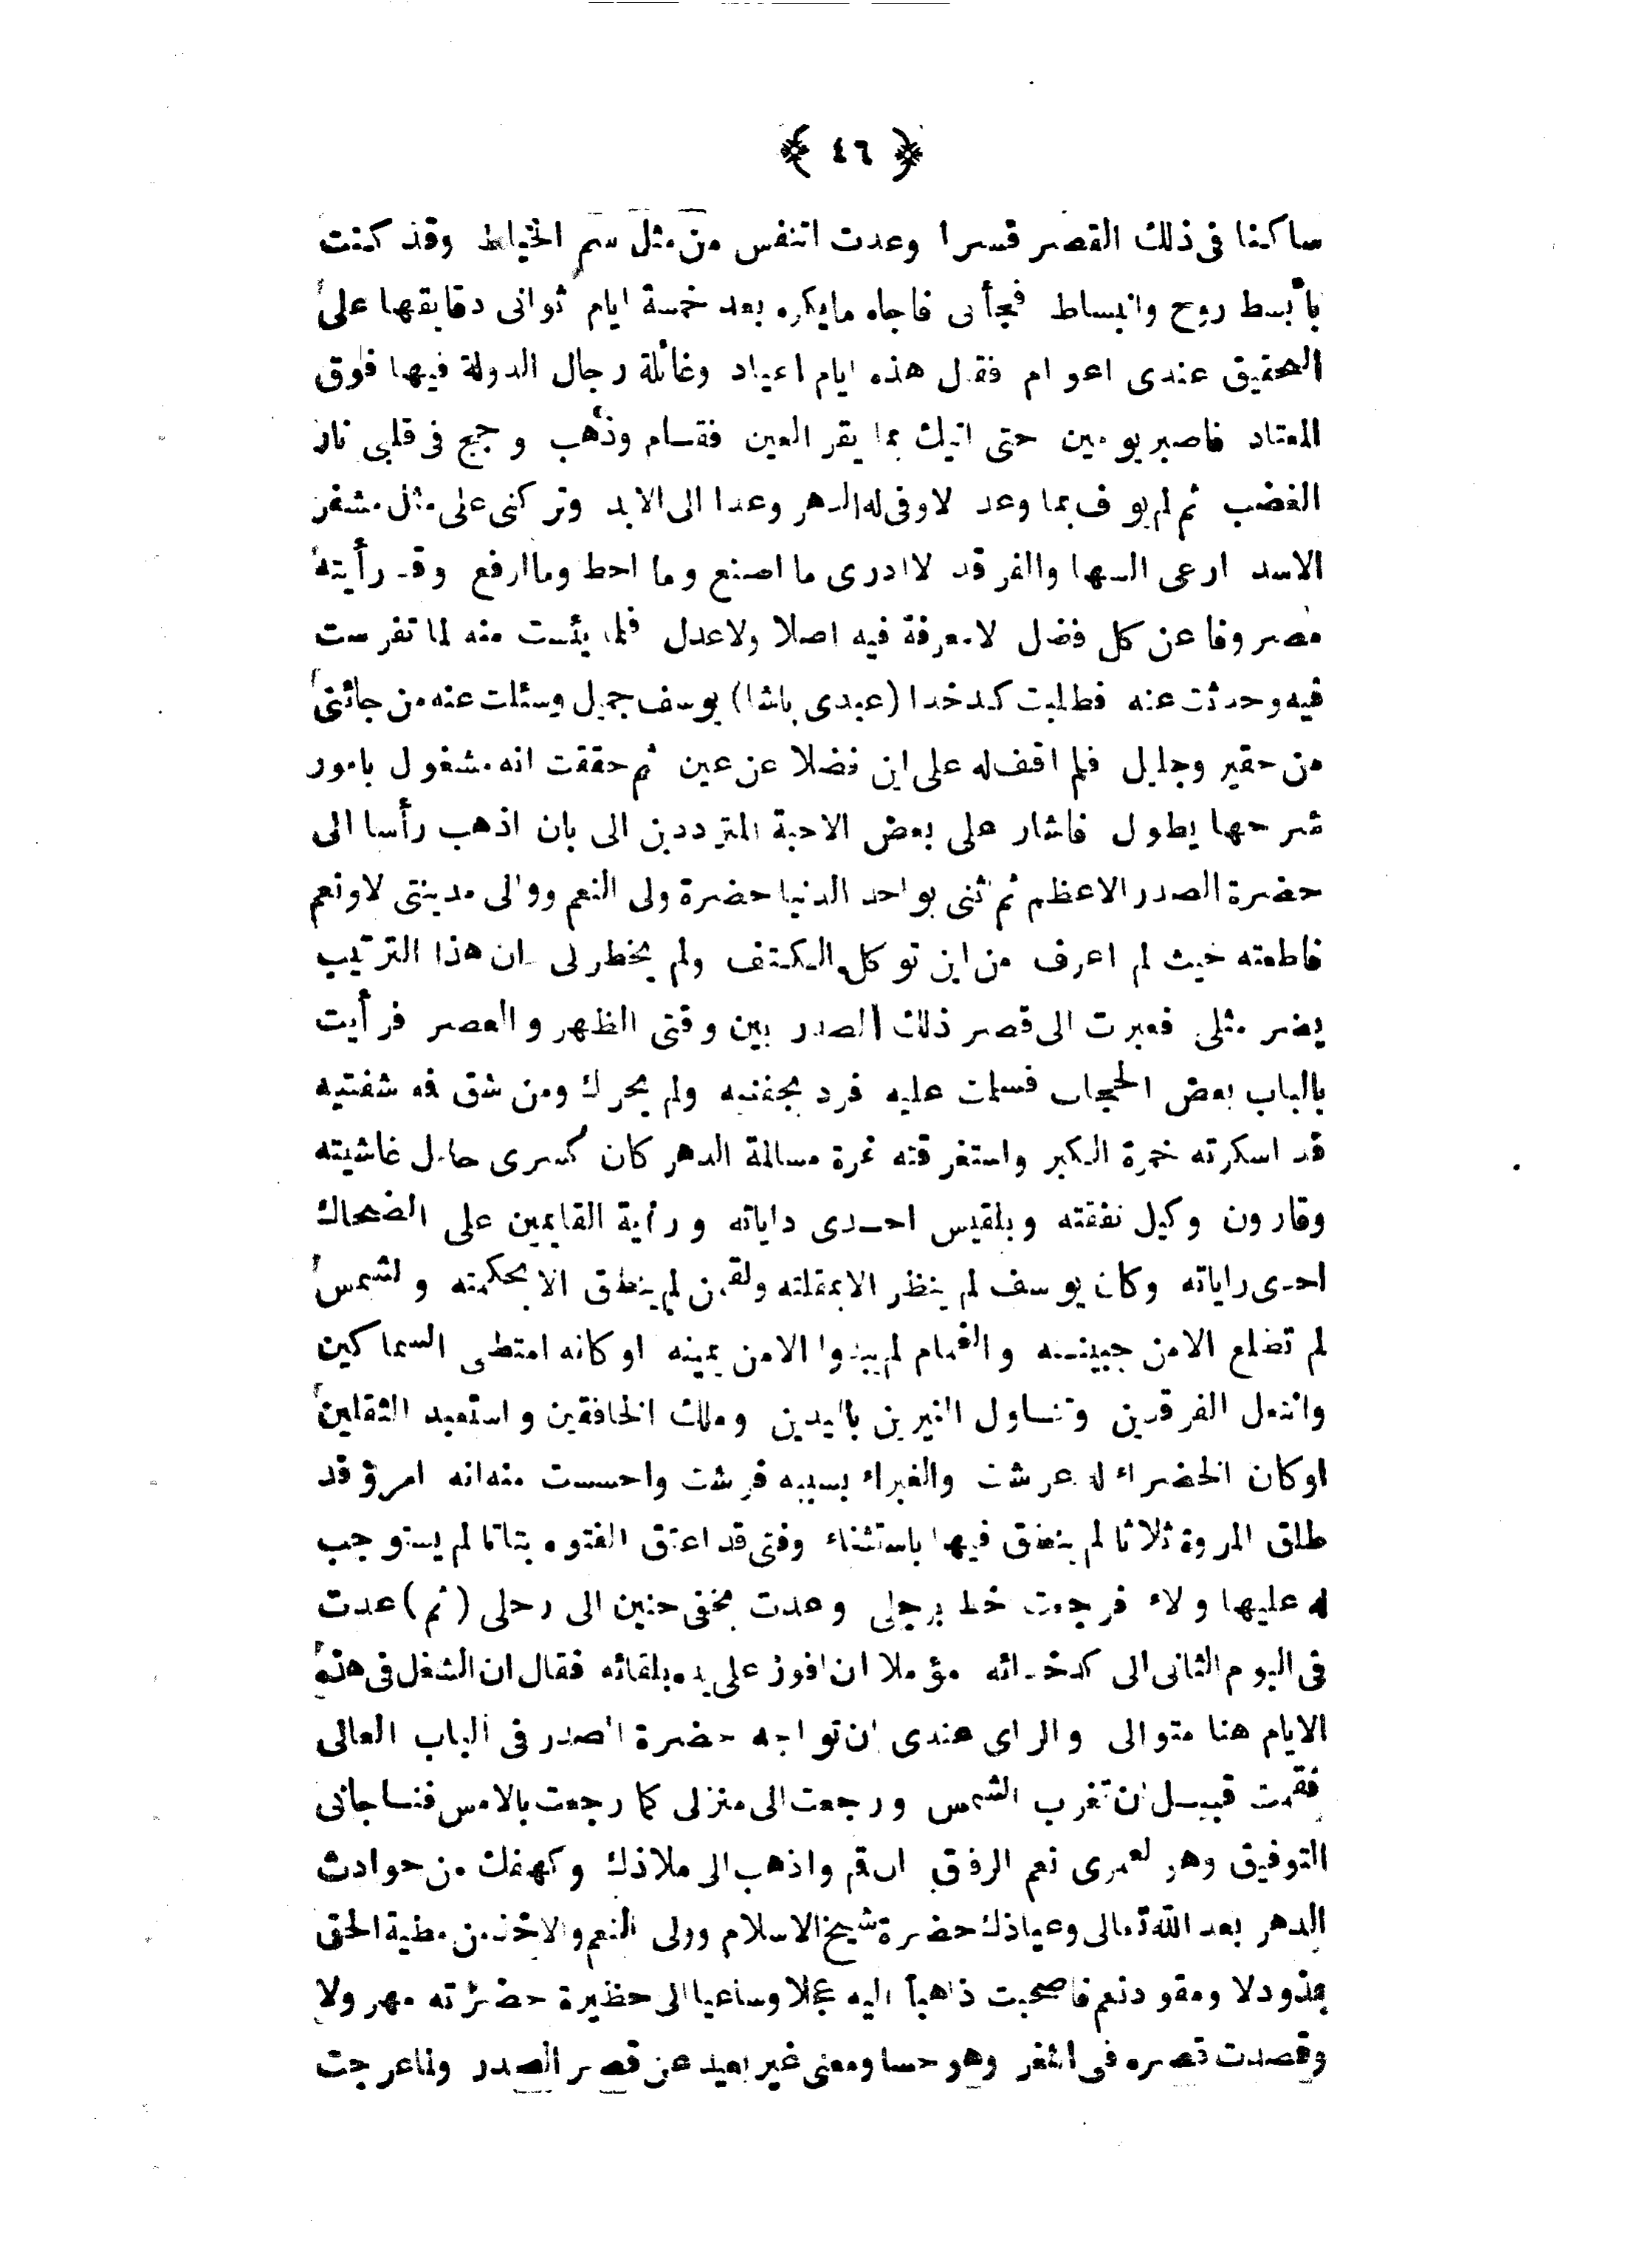 ﴿ ٤٦ ﴾
ساكنا فى ذلك القصر قسرا وعدت اتنفس من مثل سم الخياط وقد كنت
بأبسط روح وانبساط فجأنى فاجاه مايكره بعد خمسة ايام ثوانى دقايقها على
التحقيق عندى اعوام فقال هذه ايام اعياد وغائلة رجال الدولة فيها فوق
المعتاد فاصبر يومين حتى اتيك بما يقر العين فقام وذهب وحج فى قلبى نار
الغضب ثم لم يوف بما وعد لاوفى له الدهر وعدا الى الابد وتركنى على مثل مشفر
الاسد ارعى السها والفرقد لاادرى ما اصنع وما احط وماارفع وقد رأيته
مصروفا عن كل فضل لامعرفة فيه اصلا ولاعدل فلما يئست منه لما تفرست
فيه وحدثت عنه فطلبت كدخدا (عبدى باشا) يوسف جميل وسئلت عنه من جائنى
من حقير وجليل فلم اقف له على اين فضلا عن عين ثم حققت انه مشغول بامور
شرحها يطول فاشار على بعض الاحبة المترددين الى بان اذهب رأسا الى
حضرة الصدر الاعظم ثم اثنى بواحد الدنيا حضرة ولى النعم ووالى مدينتى لاونعم
فاطعته حيث لم اعرف من اين توكل الكتف ولم يخطر لى ان هذا الترتيب
يضر مثلى فعبرت الى قصر ذلك الصدر بين وقتى الظهر والعصر فرأيت
بالباب بعض الحجاب فسلمت عليه فرد بجفنيه ولم يحرك ومن شق فه شفتيه
قد اسكرته خمرة الكبر واستغرقته غرة مسالمة الدهر كان كسرى حامل غاشيته
وقارون وكيل نفقته وبلقيس احدى داياته وراية القايمين على الضحاك
احدى راياته وكان يوسف لم ينظر الابمقلته ولقمن لم ينطق الا بحكمته ولشمس
لم تطلع الامن جبينه والغمام لم يبدوا الامن يمينه اوكانه امتطى السماكين
وانتعل الفرقدين وتناول النيرين باليدين وملك الخافقين واستعبد الثقلين
اوكان الخضراء له عرشت والغبراء بسببه فرشت واحسست منه انه امرؤ قد
طلق المروة ثلاثا لم ينطق فيها باستثناء وفتى قد اعتق الفتوه بتاتا لم يستوجب
له عليها ولاء فرجعت خط برجلى وعدت بخفى حنين الى رحلى (ثم) عدت
فى اليوم الثانى الى كدخدائه مؤملا ان افوز على يده بلقائه فقال ان الشغل فى هذه
الايام هنا متوالى والراى عندى ان تواجه حضرة الصدر فى الباب العالى
فقمت قبيل ان تغرب الشمس ورجعت الى منزلى كما رجعت بالامس فناجانى
التوفيق وهو لعمرى نعم الرفيق ان قم واذهب الى ملاذك وكهفك من حوادث
الدهر بعد الله تعالى وعياذك حضرة شيخ الاسلام وولى النعم والاخذ من مطية الحق
بمذود لا ومقود نعم فاصبحت ذاهبا اليه عجلا وساعيا الى حظيرة حضرته مهرولا
وقصدت قصره فى الثغر وهو حسا ومعنى غير بعيد عن قصر الصدر ولما عرجت